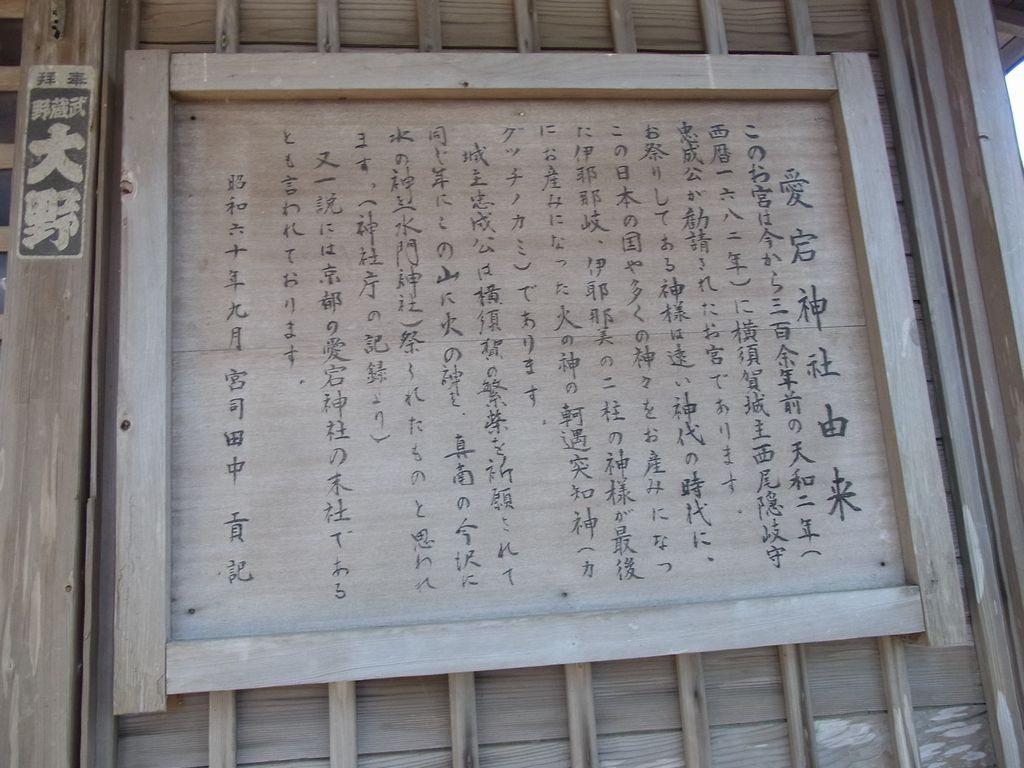 愛宕神社由来
このお宮は今から三百余年前の天和二年(
西暦一六八二年)に横須賀城主西尾隠岐守
忠成公が勧請されたお宮であります。
お祭りしてある神様は遠い神代の時代に、
この日本の国や多くの神々をお産みになっ
た伊耶那岐、伊耶那美の二柱の神様が最後
にお産みになった火の神の軻遇突知神(カ
グツチノカミ)であります。
城主忠成公は横須賀の繁栄を祈願されて
同じ年にこの山に火の神を、真南の今沢に
水の神を(水門神社)祭られたものと思われ
ます。(神社庁の記録より)
又一説には京都の愛宕神社の末社である
とも言われております。
昭和六十年九月 宮司田中 貢 記
奉拝
武蔵野
大野